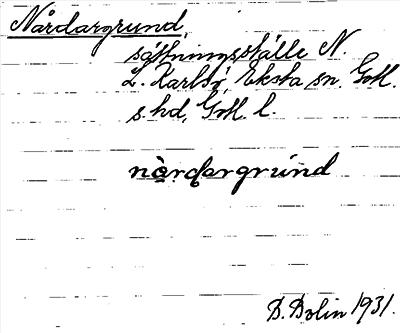 Nårdargrund,
sättningsställe N.
L. Karlsö, Eksta sn. Gotl.
s. hd, Gotl. l.
nàrdargrúnd
D. Bolin 1931.